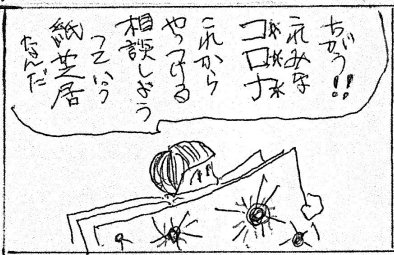 ちがう!!
これみな
コロナ
これから
やっつける
相談しよう
っていう
紙芝居
なんだ